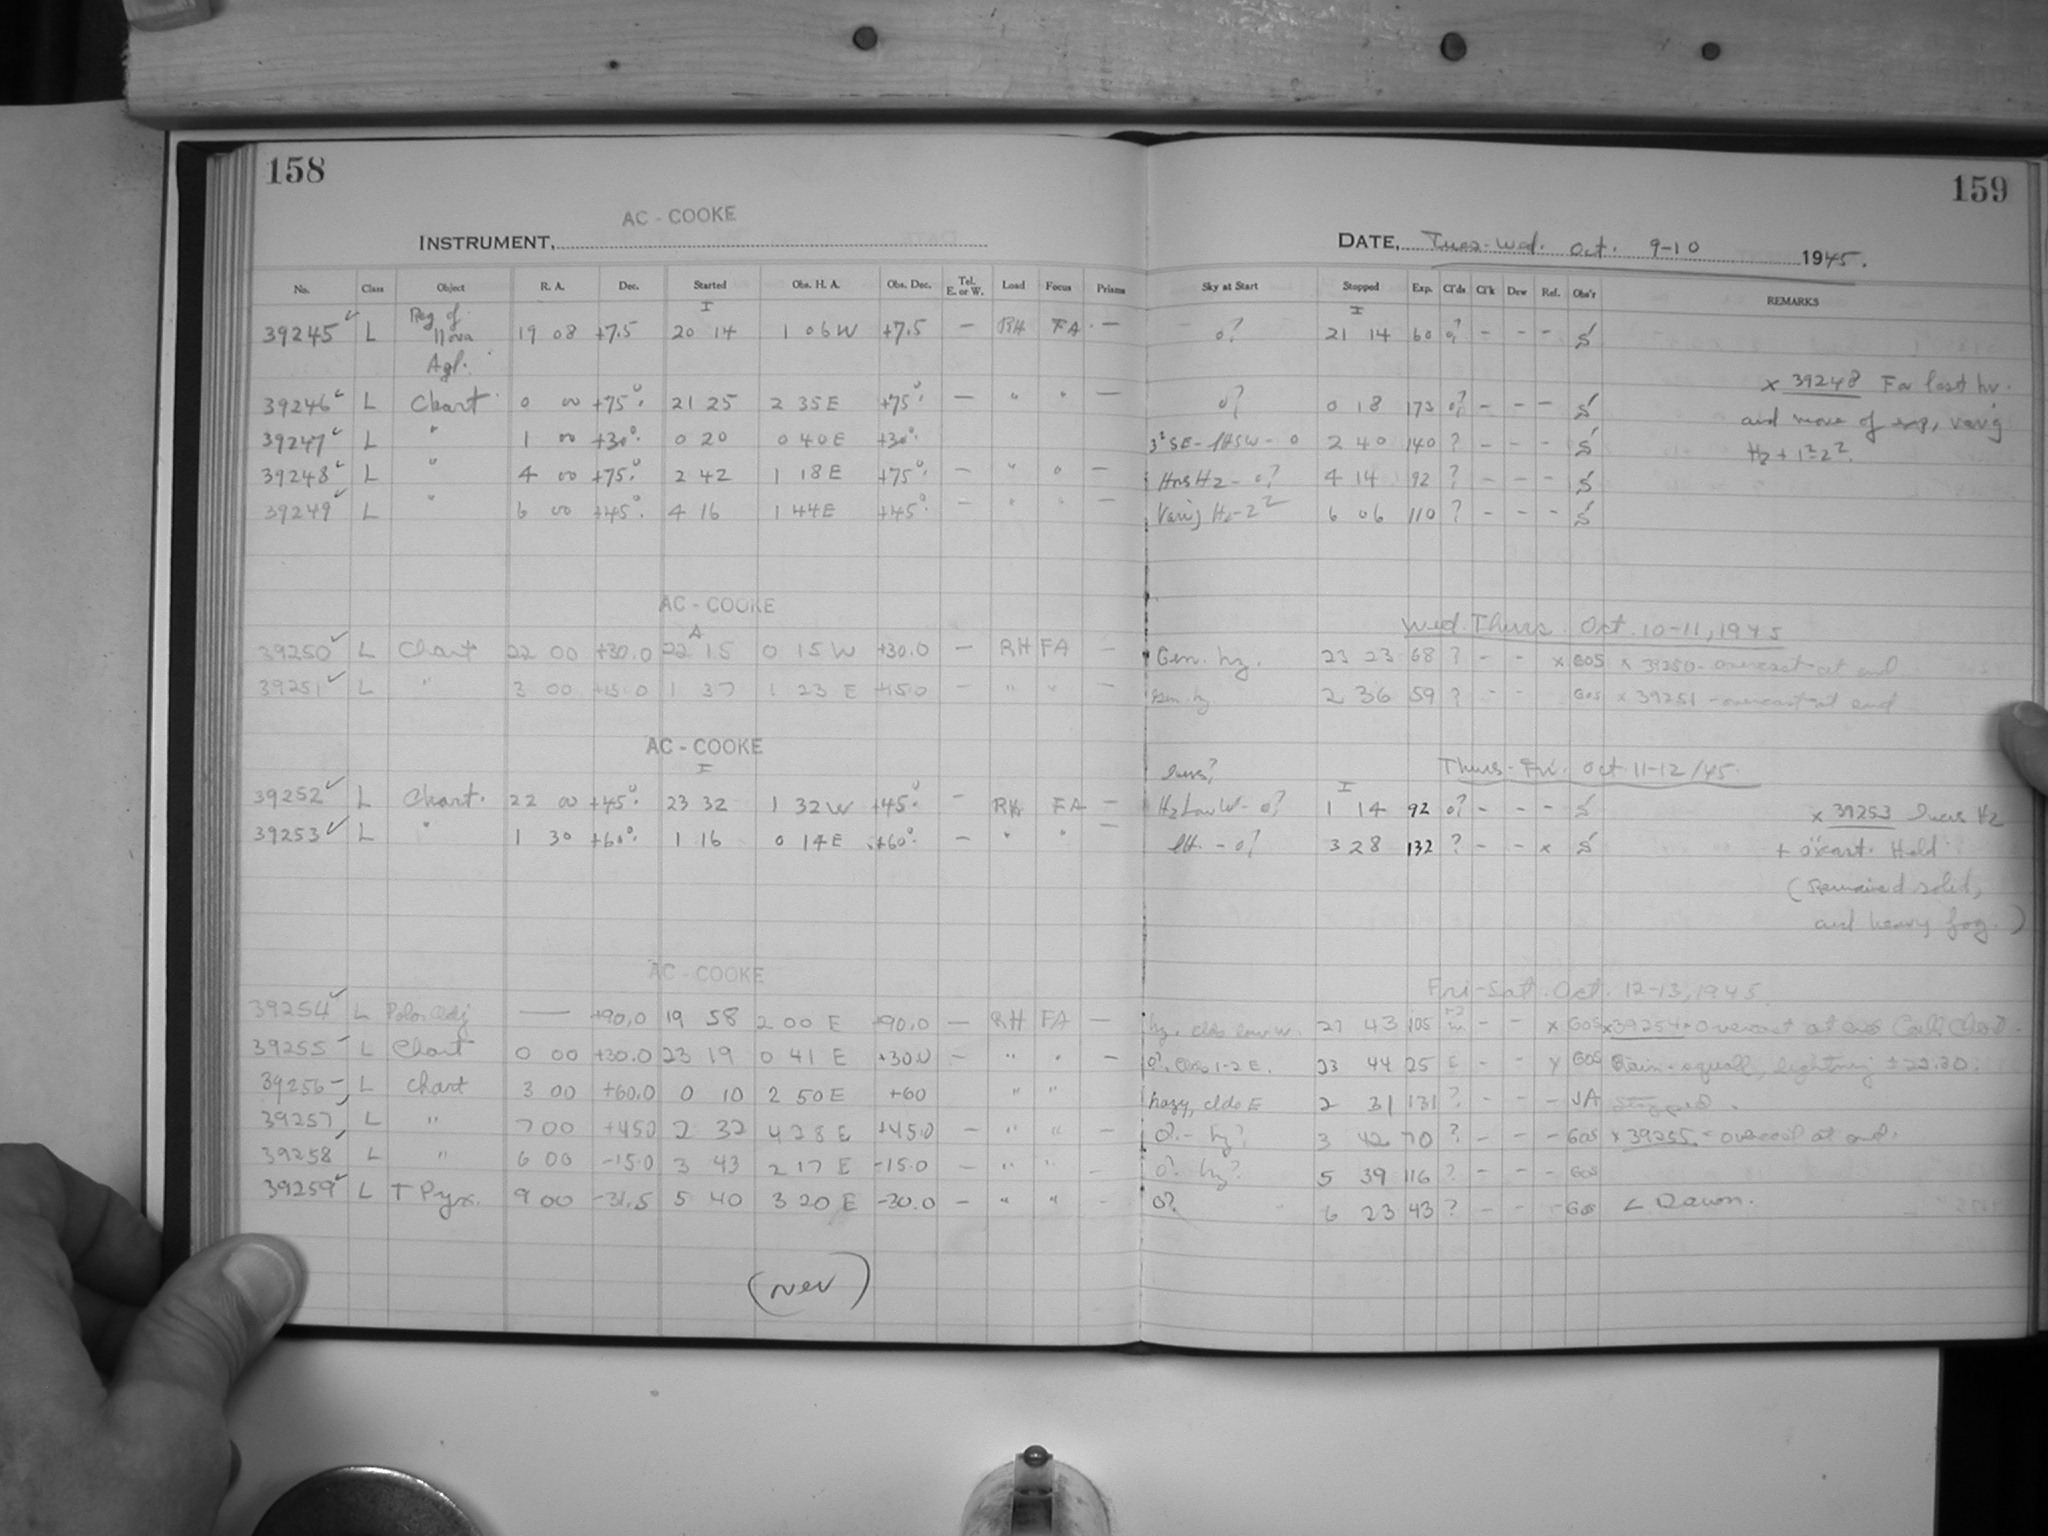 158
159
AC - COOKE
INSTRUMENT, DATE, Tues-Wed. Oct. 9-10 1945.
No. Class Object R. A. Dec. Started Obs. H. A. Obs. Dec. Tel. E. or W. Load Focus Prisms Sky at Start Stopped Exp. Cl'ds Cl'k Dew Ref. Obs'r REMARKS
I I
39245 ✓ L Reg of Nova Aql. 19 08 +7.5 20 14 1 06 W +7.5 — RH FA. — 0? 21 14 60 0? - - - S
39246 ✓ L Chart 0 00 +75° 21 25 2 35 E +75° — " " — 0? 0 18 173 0? - - - S x 39248 For last hr.
39247 ✓ L " 1 00 +30° 0 20 0 40 E +30° 2 40 140 ? - - - S and more of exp, varig
39248 ✓ L " 4 00 +75° 2 42 1 18 E +75° — " " — Hrs Hz - 0? 4 14 92 ? - - - S Hz + 1²-2².
39249 ✓ L " 6 00 +45° 4 16 1 44 E +45° — " " — Varig Hz-2² 6 06 110 ? - - - S
AC - COOKE
A Wed. Thurs. Oct. 10-11, 1945
39250 ✓ L Chart 22 00 +30.0 22 15 0 15 W +30.0 — RH FA — Gen. hz. 23 23 68 ? - - x GOS x 39250 - overcast at end
39251 ✓ L " 3 00 +15.0 1 37 1 23 E +15.0 — " " — Gen. hz 2 36 59 ? - - GOS x 39251 - overcast at end
AC - COOKE
I Thurs-Fri. Oct. 11-12/45.
I
39252 ✓ L Chart. 22 00 +45° 23 32 1 32 W +45° — RH FA — Hz Low W - 0? 1 14 92 0? - - - S x 39253 Hz
39253 ✓ L " 1 30 +60° 1 16 0 14 E +60° — " " — - 0? 3 28 132 ? - - x S + o'cast. Held
(Remained solid,
and heavy fog.)
AC - COOKE
Fri-Sat. Oct. 12-13, 1945
39254 ✓ L Polar Adj — +90.0 19 58 2 00 E +90.0 — RH FA — hz. clds low W. 21 43 105 - - x GOS x 39254 - Overcast at end
39255 L Chart 0 00 +30.0 23 19 0 41 E +30.0 — " " — 0?. Clds 1-2 E. 23 44 25 - - GOS Rain - squall, lightning ± 22.30.
39256 L Chart 3 00 +60.0 0 10 2 50 E +60 " " hazy, clds E 2 31 131 ? - - - JA Stopped.
39257 L " 7 00 +45.0 2 32 4 28 E +45.0 — " " — 0?- hz? 3 42 70 ? - - - GOS x 39255 - overcast at end.
39258 L " 6 00 -15.0 3 43 2 17 E -15.0 — " " - 0? hz? 5 39 116 ? - - - GOS
39259 ✓ L T Pyx. 9 00 -31.5 5 40 3 20 E -30.0 - " " - 0? 6 23 43 ? - - - GOS < Dawn.
(Nev)